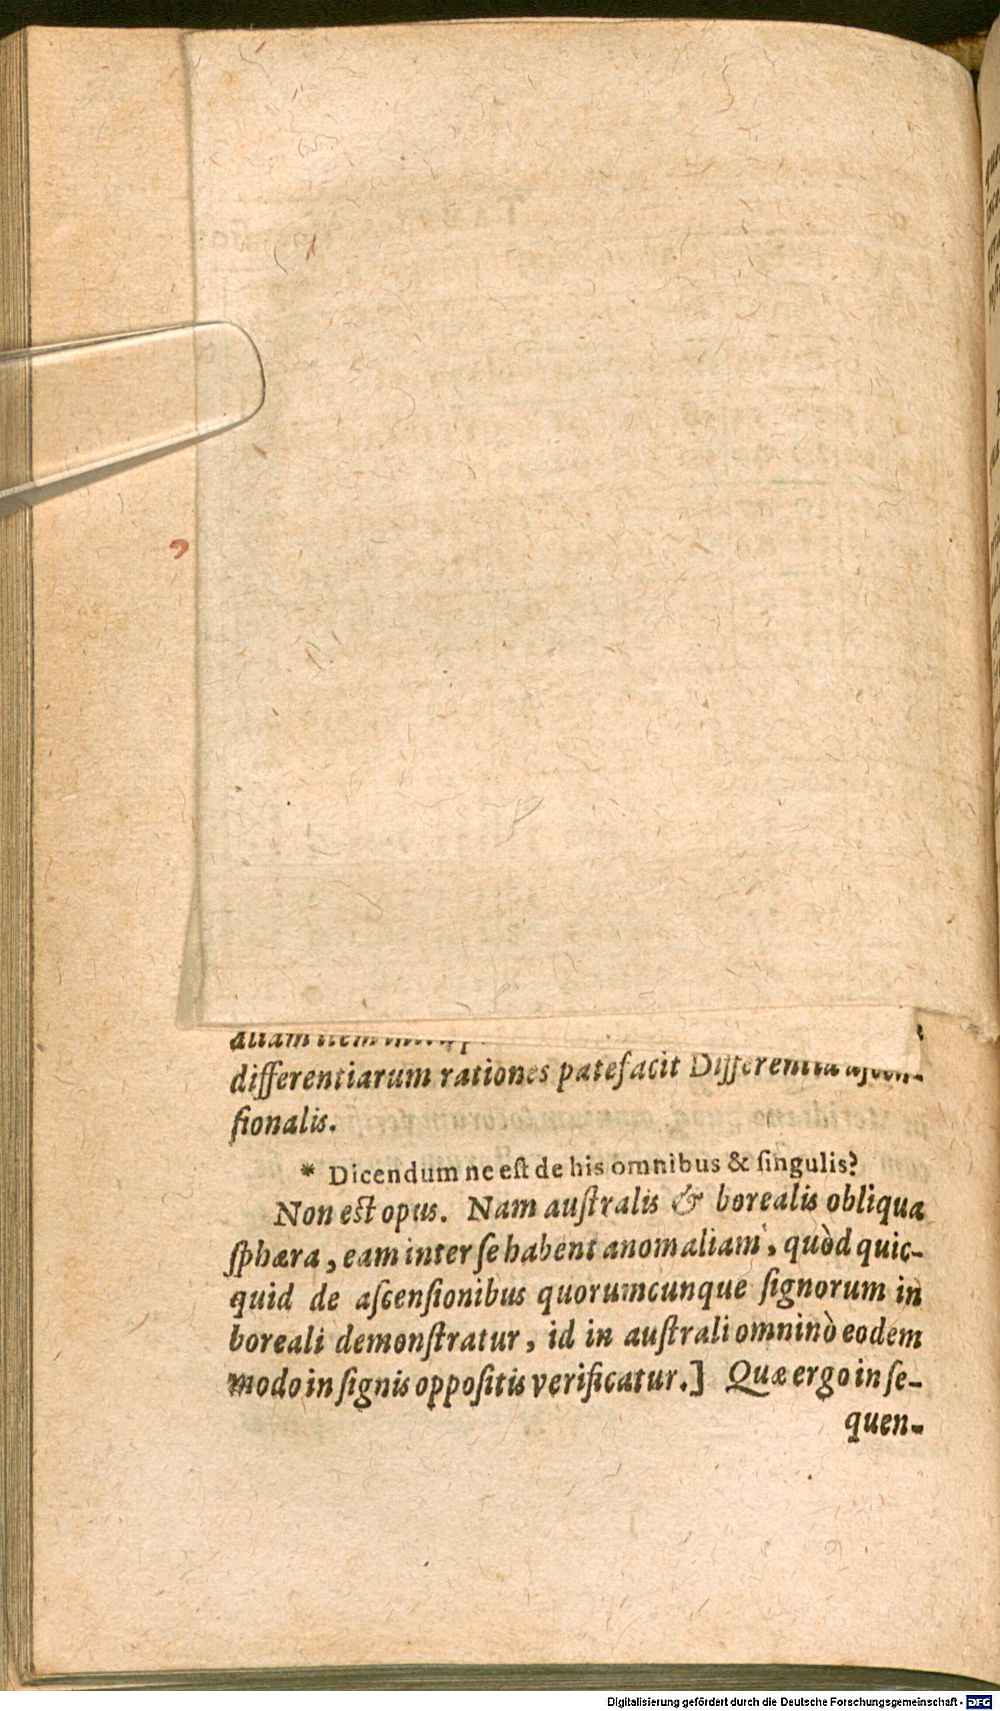 differentiarum rationes patefacit Differentia ascen-
sionalis.
* Dicendum ne est de his omnibus & singulis?
Non est opus. Nam australis & borealis obliqua
sphæra, eam inter se habent anomaliam, quòd quic-
quid de ascensionibus quorumcunque signorum in
boreali demonstratur, id in australi omninò eodem
modo in signis oppositis verificatur.] Quæ ergo in se-
quen-
Digitalisierung gefördert durch die Deutsche Forschungsgemeinschaft - DFG